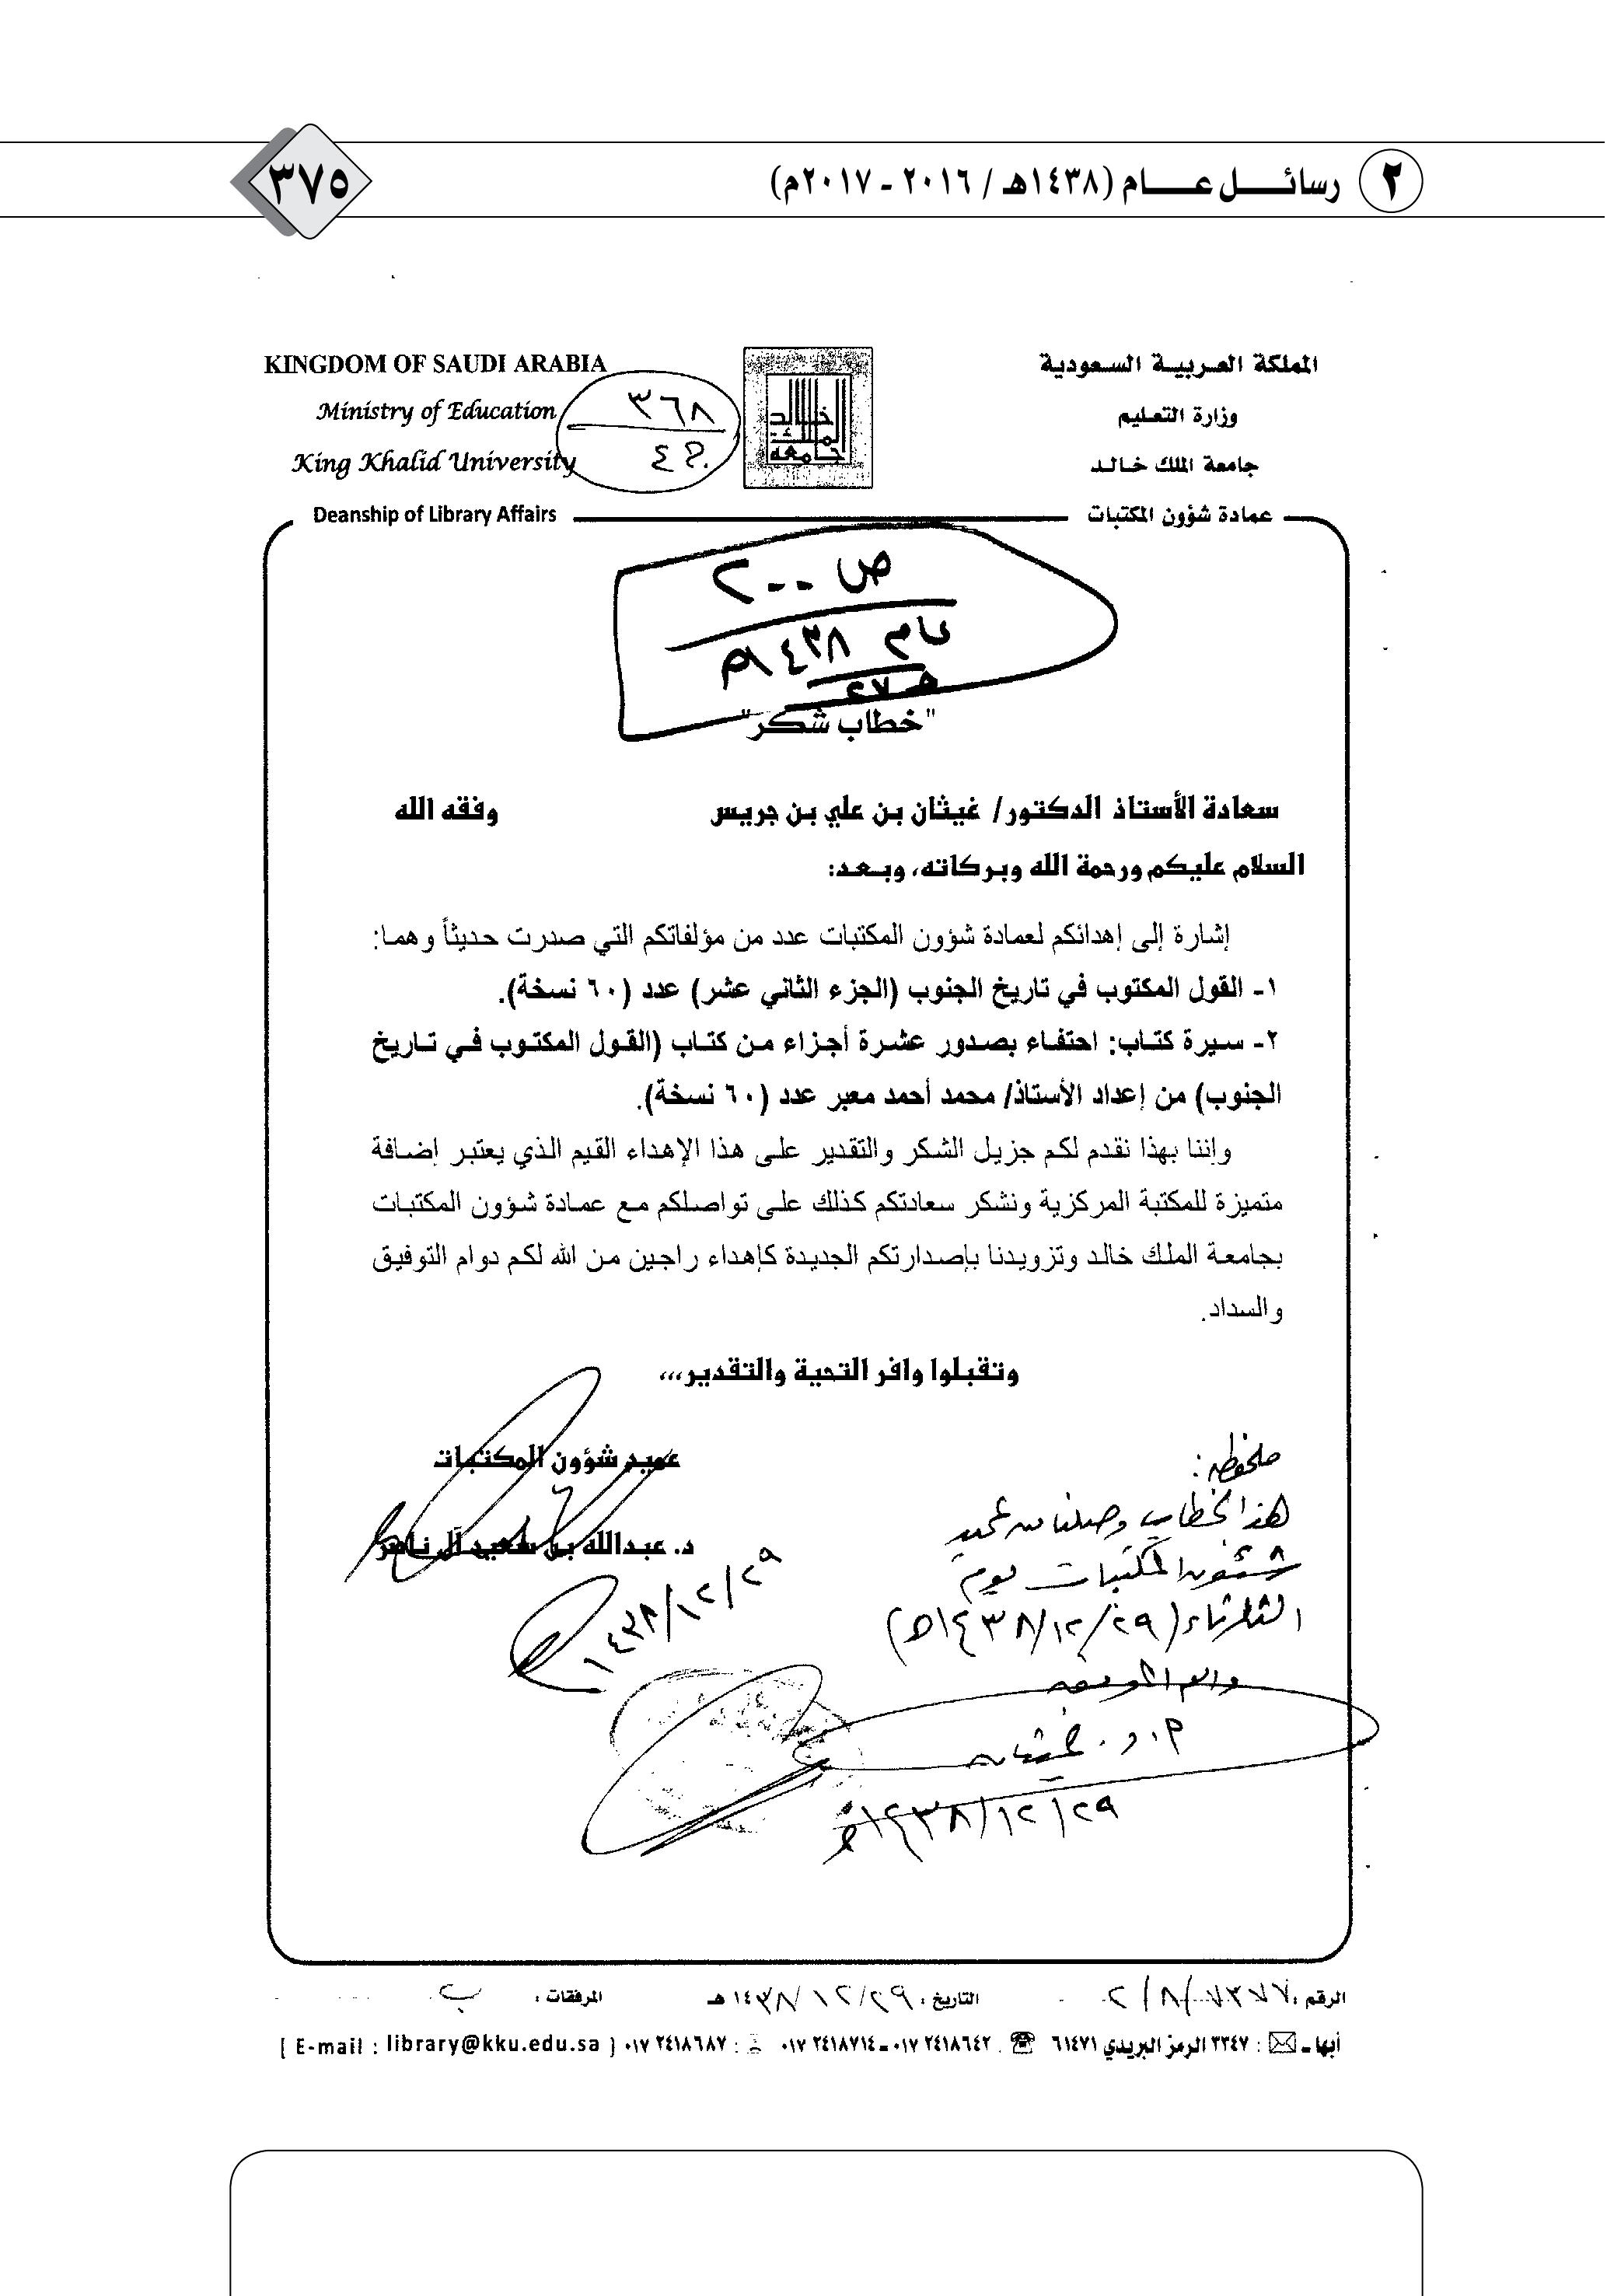 ٢ رسائـــــل عـــــام (١٤٣٨هـ / ٢٠١٦ - ٢٠١٧م)
٣٧٥
المملكة العربيـة السعودية
وزارة التعليم
جامعة الملك خالد
عمادة شؤون المكتبات
KINGDOM OF SAUDI ARABIA
Ministry of Education
King Khalid University
Deanship of Library Affairs
٣٦٨
ص ٢٠٠
عام ١٤٣٨هـ
"خطاب شكر"
سعادة الأستاذ الدكتور/ غيثان بن علي بن جريس وفقه الله
السلام عليكم ورحمة الله وبركاته، وبعد:
إشارة إلى إهدائكم لعمادة شؤون المكتبات عدد من مؤلفاتكم التي صدرت حديثاً وهما:
١- القول المكتوب في تاريخ الجنوب (الجزء الثاني عشر) عدد (٦٠ نسخة).
٢- سيرة كتاب: احتفاء بصدور عشرة أجزاء من كتاب (القول المكتوب في تاريخ
الجنوب) من إعداد الأستاذ/ محمد أحمد معبر عدد (٦٠ نسخة).
وإننا بهذا نقدم لكم جزيل الشكر والتقدير على هذا الإهداء القيم الذي يعتبر إضافة
متميزة للمكتبة المركزية ونشكر سعادتكم كذلك على تواصلكم مع عمادة شؤون المكتبات
بجامعة الملك خالد وتزويدنا بإصدارتكم الجديدة كإهداء راجين من الله لكم دوام التوفيق
والسداد.
وتقبلوا وافر التحية والتقدير،،،
عميد شؤون المكتبات
د. عبدالله بن سعيد آل ناصر
١٤٣٨/١٢/٢٩
ملحوظة:
هذا الخطاب وصلنا من عميد
شئون المكتبات يوم
الثلاثاء (١٤٣٨/١٢/٢٩هـ)
والله الموفق
أ. د. غيثان
١٤٣٨/١٢/٢٩هـ
الرقم : ٢/٨/٧٣٧٧ التاريخ : ١٤٣٨/١٢/٢٩ هـ المرفقات :
أبها - : ٣٣٤٧ الرمز البريدي ٦١٤٧١ . ٠١٧ ٢٤١٨٦٤٢ - ٠١٧ ٢٤١٨٧١٤ : ٠١٧ ٢٤١٨٦٨٧ [ E-mail : library@kku.edu.sa )